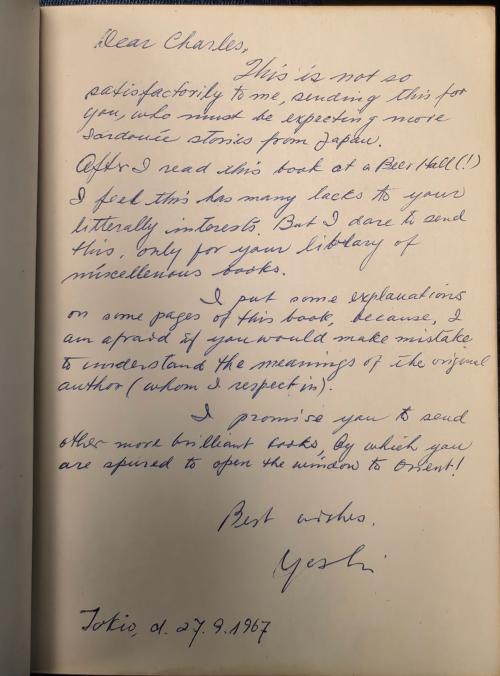 Dear Charles,
This is not so
satisfactorily to me, sending this for
you, who must be expecting more
stories from Japan.
After I read this book at a Beer Hall(!)
I feel this has many lacks to your
litterally interests. But I dare to send
this, only for your library of
miscellenous books.
I put some explanations
on some pages of this book, because, I
am afraid if you would make mistake
to understand the meanings of the original
author (whom I respect in).
I promise you to send
other more brilliant books, by which you
are spured to open the window to Orient!
Best wishes.
Yoshi
Tokio, d. 27.9.1967